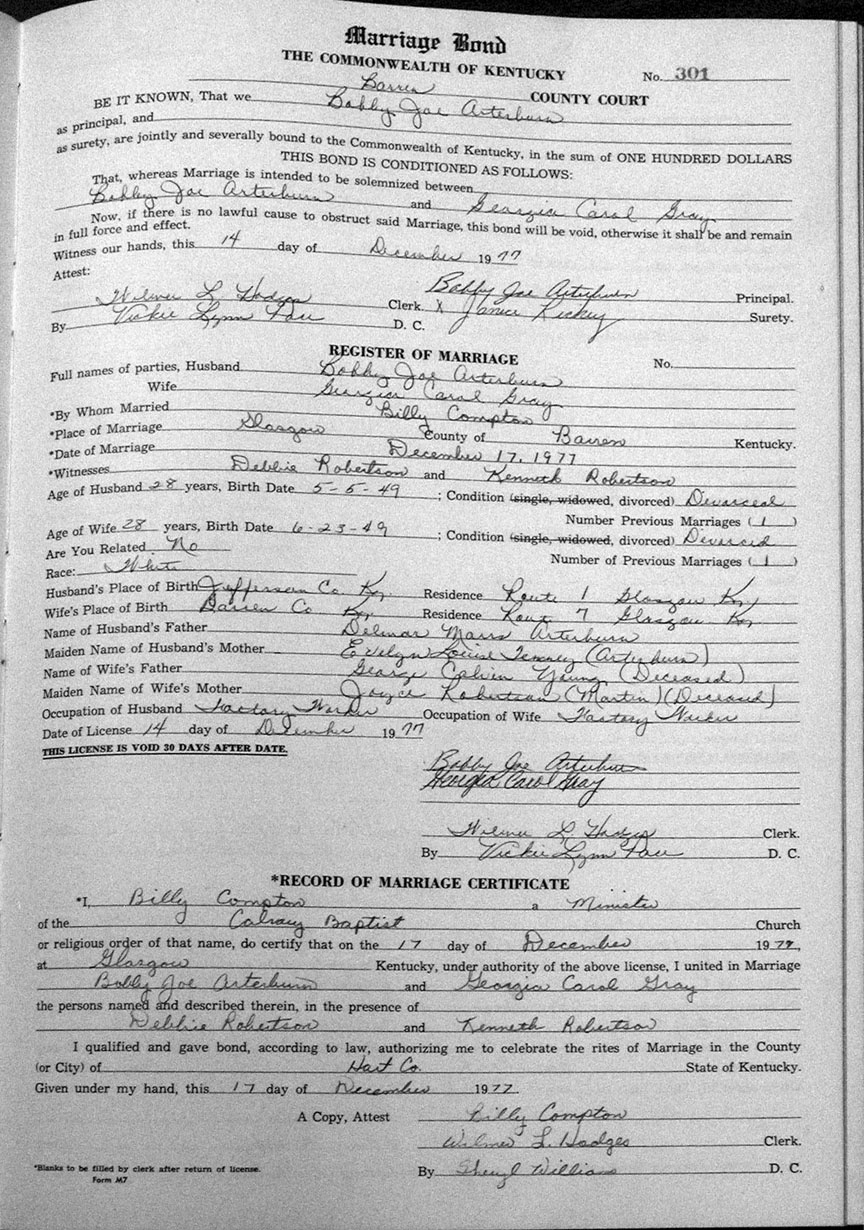 Marriage Bond
THE COMMONWEALTH OF KENTUCKY No. 301
Barren COUNTY COURT
BE IT KNOWN, That we Bobby Joe Arterburn
as principal, and
as surety, are jointly and severally bound to the Commonwealth of Kentucky, in the sum of ONE HUNDRED DOLLARS
THIS BOND IS CONDITIONED AS FOLLOWS:
That, whereas Marriage is intended to be solemnized between
Bobby Joe Arterburn and Georgia Carol Gray
Now, if there is no lawful cause to obstruct said Marriage, this bond will be void, otherwise it shall be and remain
in full force and effect.
Witness our hands, this 14 day of December 1977
Attest:
Bobby Joe Arterburn Principal.
Wilmer L. Hodges Clerk. X Janice Surety.
By Vickie Lynn D. C.
REGISTER OF MARRIAGE
Full names of parties, Husband Bobby Joe Arterburn No.
Wife Georgia Carol Gray
*By Whom Married Billy Compton
*Place of Marriage Glasgow County of Barren Kentucky.
*Date of Marriage December 17, 1977
*Witnesses Debbie Robertson and Kenneth Robertson
Age of Husband 28 years, Birth Date 5-5-49 ; Condition (single, widowed, divorced) Divorced
Number Previous Marriages ( 1 )
Age of Wife 28 years, Birth Date 6-23-49 ; Condition (single, widowed, divorced) Divorced
Are You Related No Number of Previous Marriages ( 1 )
Race: White
Husband's Place of Birth Jefferson Co. Ky. Residence Route 1 Glasgow Ky
Wife's Place of Birth Barren Co Ky. Residence Route 7 Glasgow Ky
Name of Husband's Father Delmar Marrs Arterburn
Maiden Name of Husband's Mother Evelyn Louise (Arterburn)
Name of Wife's Father George Calvin Young (Deceased)
Maiden Name of Wife's Mother Joyce Robertson (Martin) (Deceased)
Occupation of Husband Factory Worker Occupation of Wife Factory Worker
Date of License 14 day of December 1977
THIS LICENSE IS VOID 30 DAYS AFTER DATE.
Bobby Joe Arterburn
Georgia Carol Gray
Wilmer L. Hodges Clerk.
By Vickie Lynn D. C.
*RECORD OF MARRIAGE CERTIFICATE
*I, Billy Compton a Minister
of the Calvary Baptist Church
or religious order of that name, do certify that on the 17 day of December 1977,
at Glasgow Kentucky, under authority of the above license, I united in Marriage
Bobby Joe Arterburn and Georgia Carol Gray
the persons named and described therein, in the presence of
Debbie Robertson and Kenneth Robertson
I qualified and gave bond, according to law, authorizing me to celebrate the rites of Marriage in the County
(or City) of Hart Co. State of Kentucky.
Given under my hand, this 17 day of December 1977.
A Copy, Attest Billy Compton
Wilmer L. Hodges Clerk.
*Blanks to be filled by clerk after return of license. By Sheryl Williams D. C.
Form M7